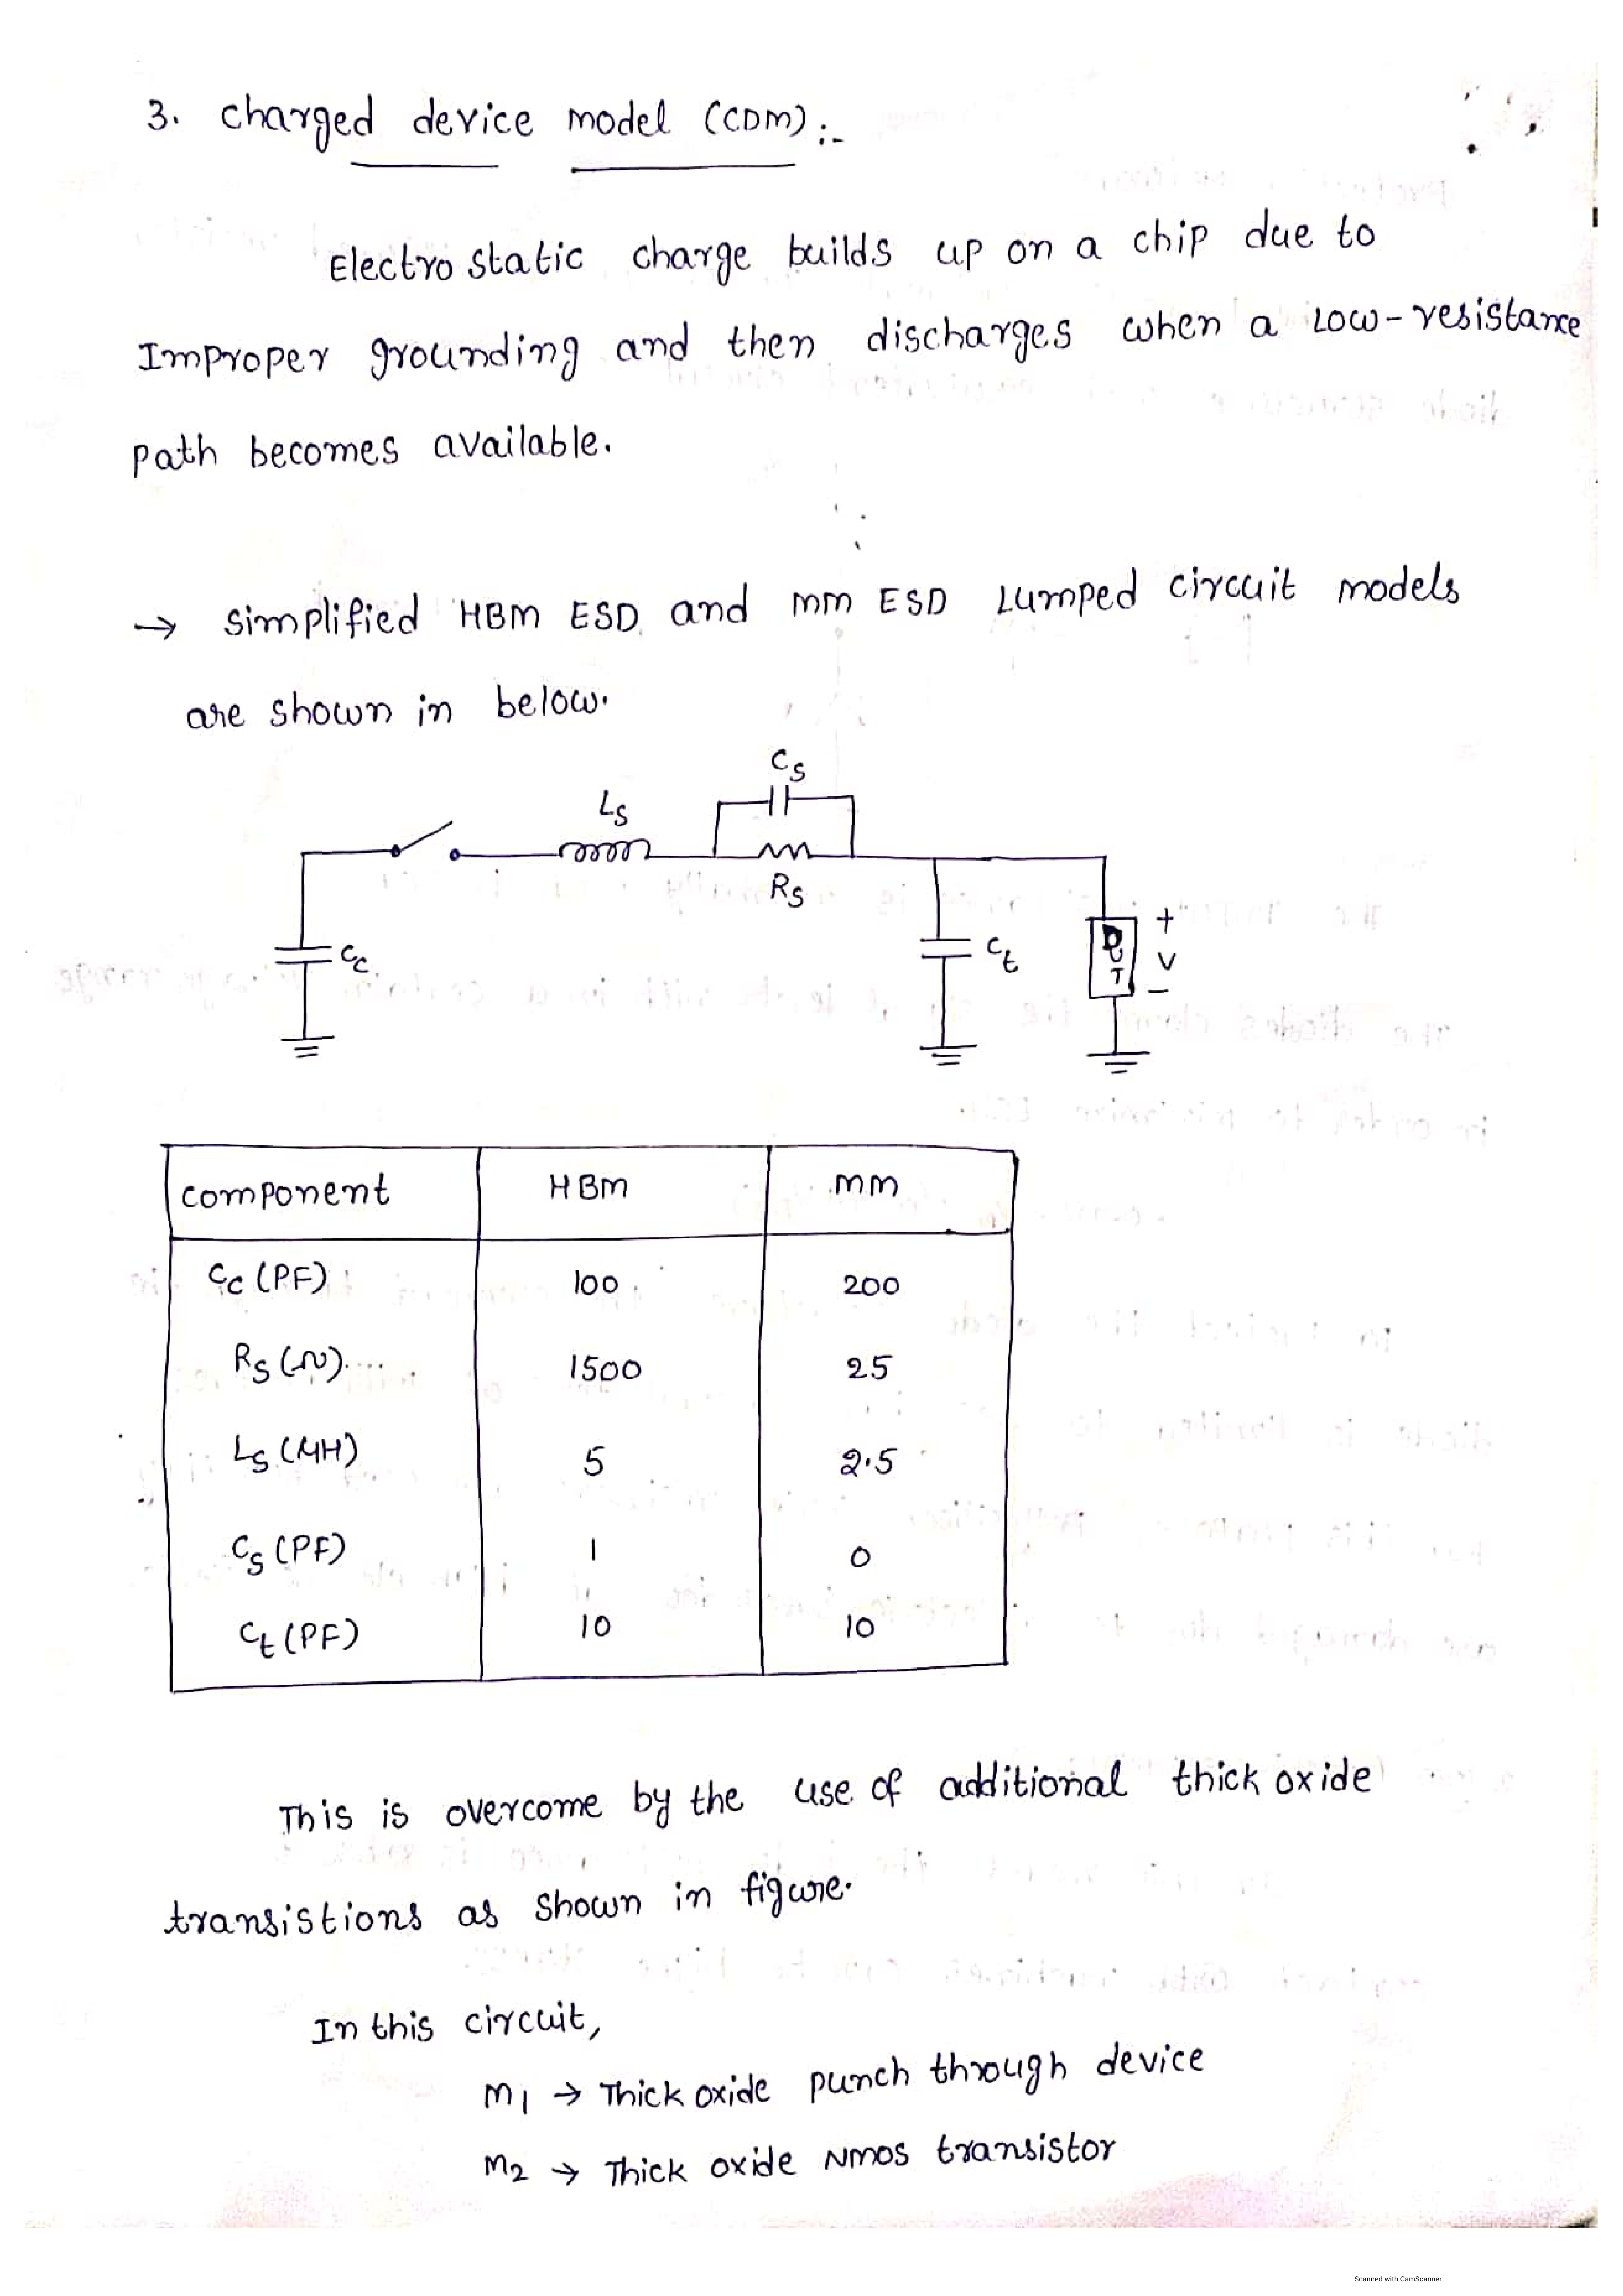 3. charged device model (CDM):-
Electro static charge builds up on a chip due to
Improper grounding and then discharges when a Low-resistance
path becomes available.
→ simplified HBM ESD and MM ESD Lumped circuit models
are shown in below.
Cs
Ls
Rs
Cc
Ct
DUT
+
V
−
component HBM MM
Cc (PF) 100 200
Rs (Ω) 1500 25
Ls (μH) 5 2.5
Cs (PF) 1 0
Ct (PF) 10 10
This is overcome by the use of additional thick oxide
transistions as shown in figure.
In this circuit,
M1 → Thick oxide punch through device
M2 → Thick oxide NMOS transistor
Scanned with CamScanner